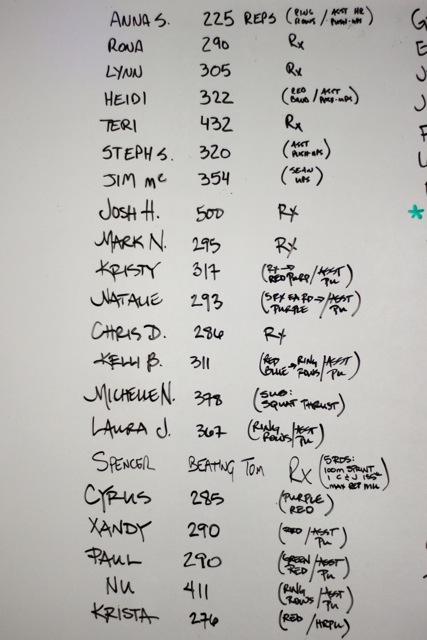 ANNA S. 225 REPS (RING ROWS / ASST HR PUSH-UPS)
RONA 290 Rx
LYNN 305 Rx
HEIDI 322 (RED BAND / ASST PUSH-UPS)
TERI 432 Rx
STEPH S. 320 (ASST PUSH-UPS)
JIM Mc 354
JOSH H. 500 RX
MARK N. 295 RX
KRISTY 317 (RX → RED PURP / ASST PU)
NATALIE 293 (→ PURPLE / ASST PU)
CHRIS D. 286 RX
KELLI B. 311 (RED BLUE → RING ROWS / ASST PU)
MICHELLE N. 378 (SUB: SQUAT THRUST)
LAURA J. 367 (RING ROWS / ASST PU)
SPENCER BEATING TOM RX (5 RDS: 100m SPRINT 1 C & J 155# MAX REP MU)
CYRUS 285 (PURPLE RED)
XANDY 290 (RED / ASST PU)
PAUL 290 (GREEN RED / ASST PU)
NU 411 (RING ROWS / ASST PU)
KRISTA 276 (RED / HRPU)